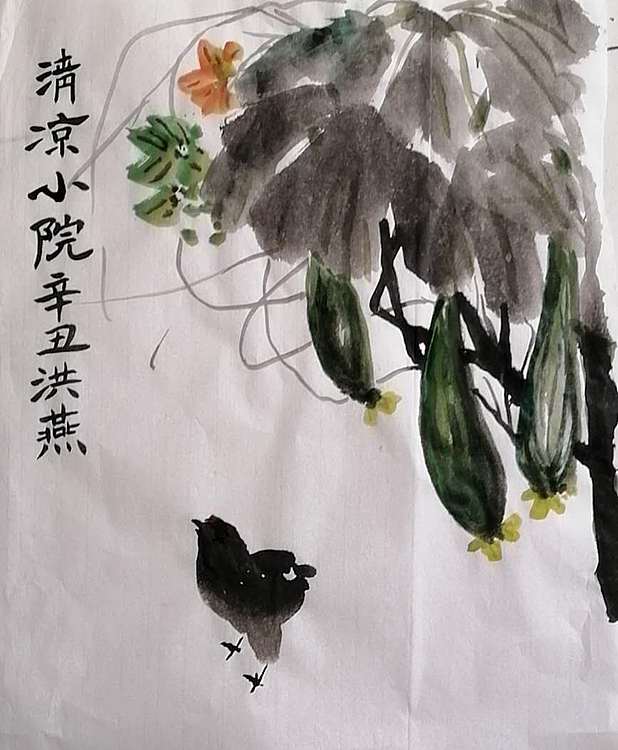 清凉小院辛丑洪燕